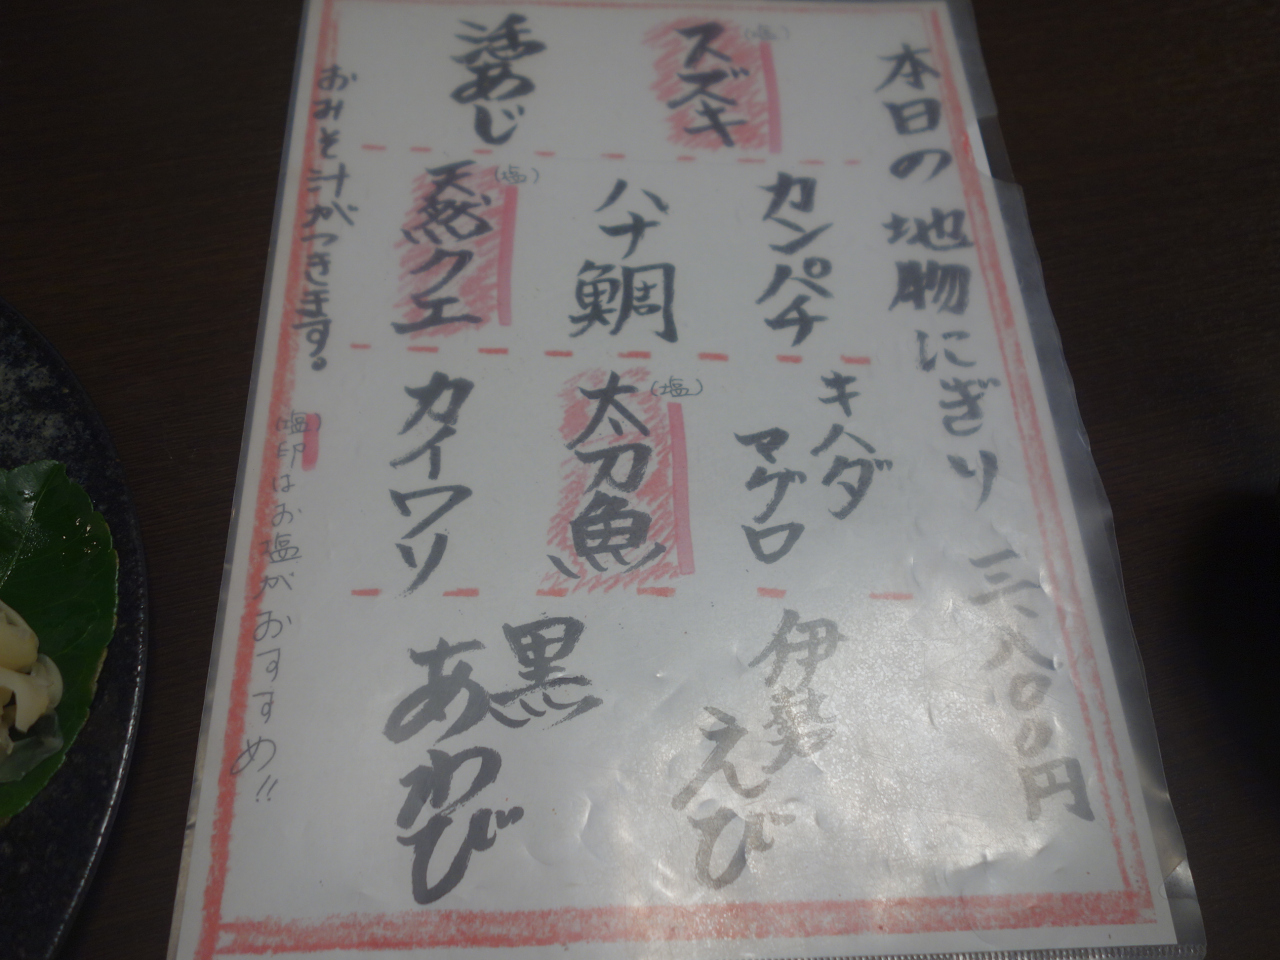 本日の地物にぎり 三、八〇〇円
スズキ
(塩)
活あじ
カンパチ
ハナ鯛
天然クエ
(塩)
キハダ
マグロ
太刀魚
(塩)
カイワリ
伊勢
えび
黒
あわび
おみそ汁がつきます。
(塩)印はお塩がおすすめ!!